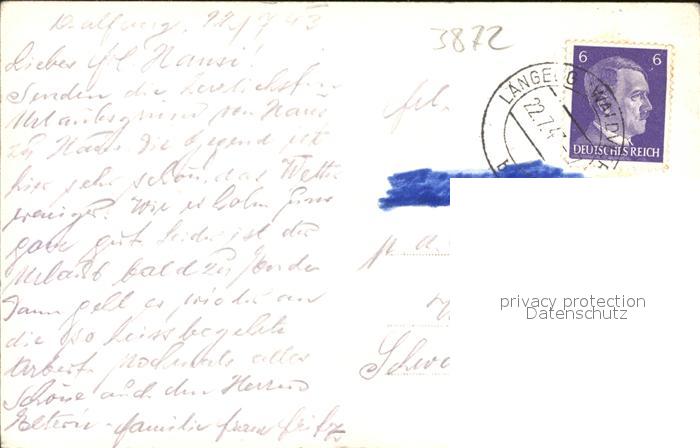 22/7 43
3872
Liebes Frl. Hansi!
Senden die herzlichsten
Urlaubsgrüsse von Haus
zu Haus. Die Gegend ist
hier sehr schön, das Wetter
weniger. Wir erholen uns
ganz gut leider ist der
Urlaub bald zu Ende
Dann geht es wieder an
die so heissbegehrte
Arbeit. Nochmals alles
Schöne auch den Herren
Eltern - Familie Franz Fritz
6 6
DEUTSCHES REICH
LANGEGG
22.7.4
b
Frl.
Schw
privacy protection
Datenschutz